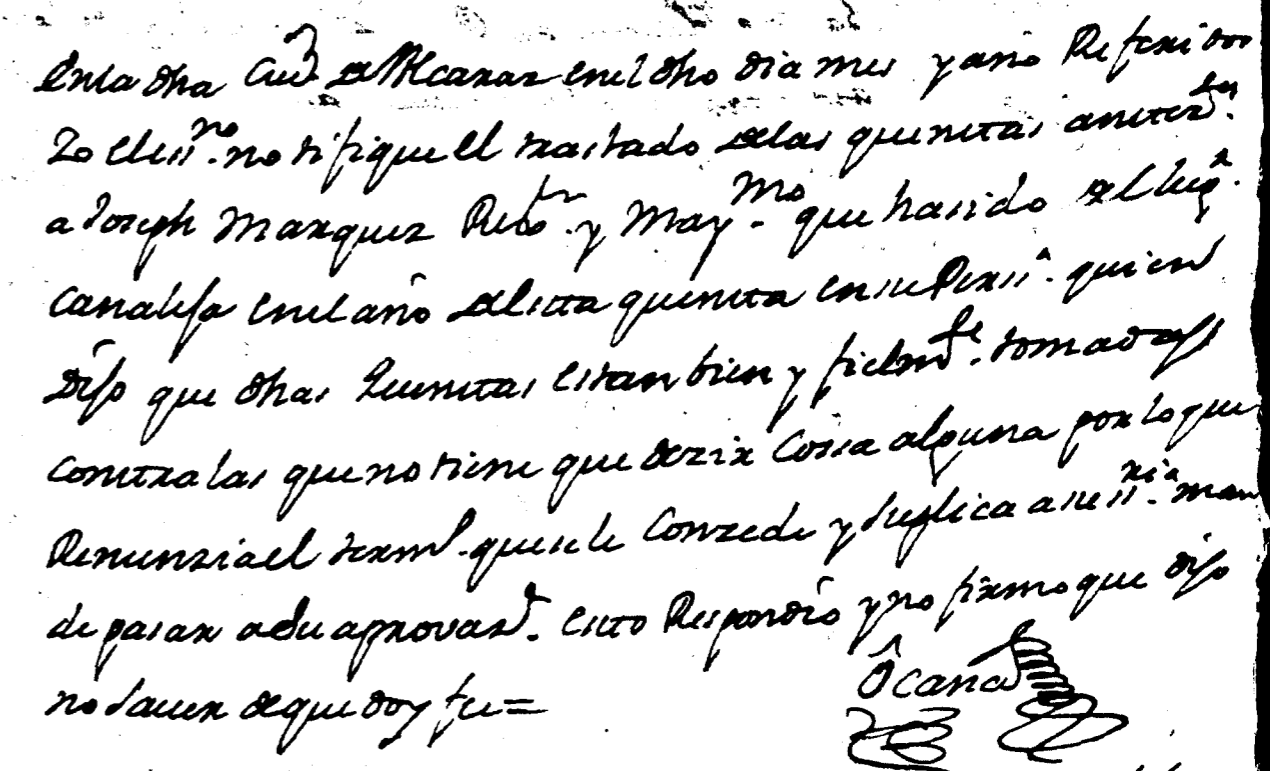 En la dha Ciud. de Alcaraz en el dho dia mes y año Referidos
Yo el essno. notifique el traslado de las quentas antezedtes.
a Joseph Marquez Rexor. y Maymo. que ha sido del lugr.
Canaleja en el año de esta quenta en su Persa. quien
Dijo que dhas quentas estan bien y fielmte. tomadas
contra las que no tiene que dezir Cossa alguna por lo que
Renunzia el termo. que se le Conzede y suplica a su ssria. man
de pasar a su aprovazn. esto Respondio y no firmo que dijo
no saver de que doy fee=
Ocaña